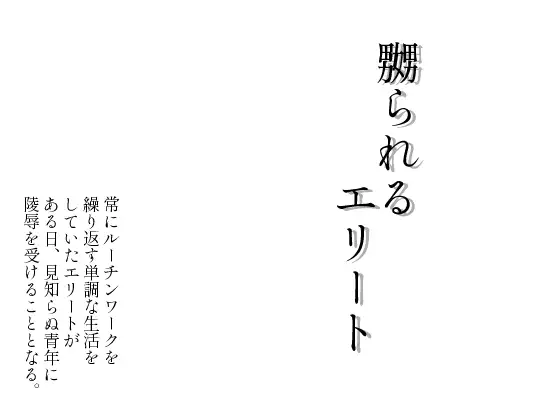 嬲られる
エリート
常にルーチンワークを
繰り返す単調な生活を
していたエリートが
ある日、見知らぬ青年に
陵辱を受けることとなる。